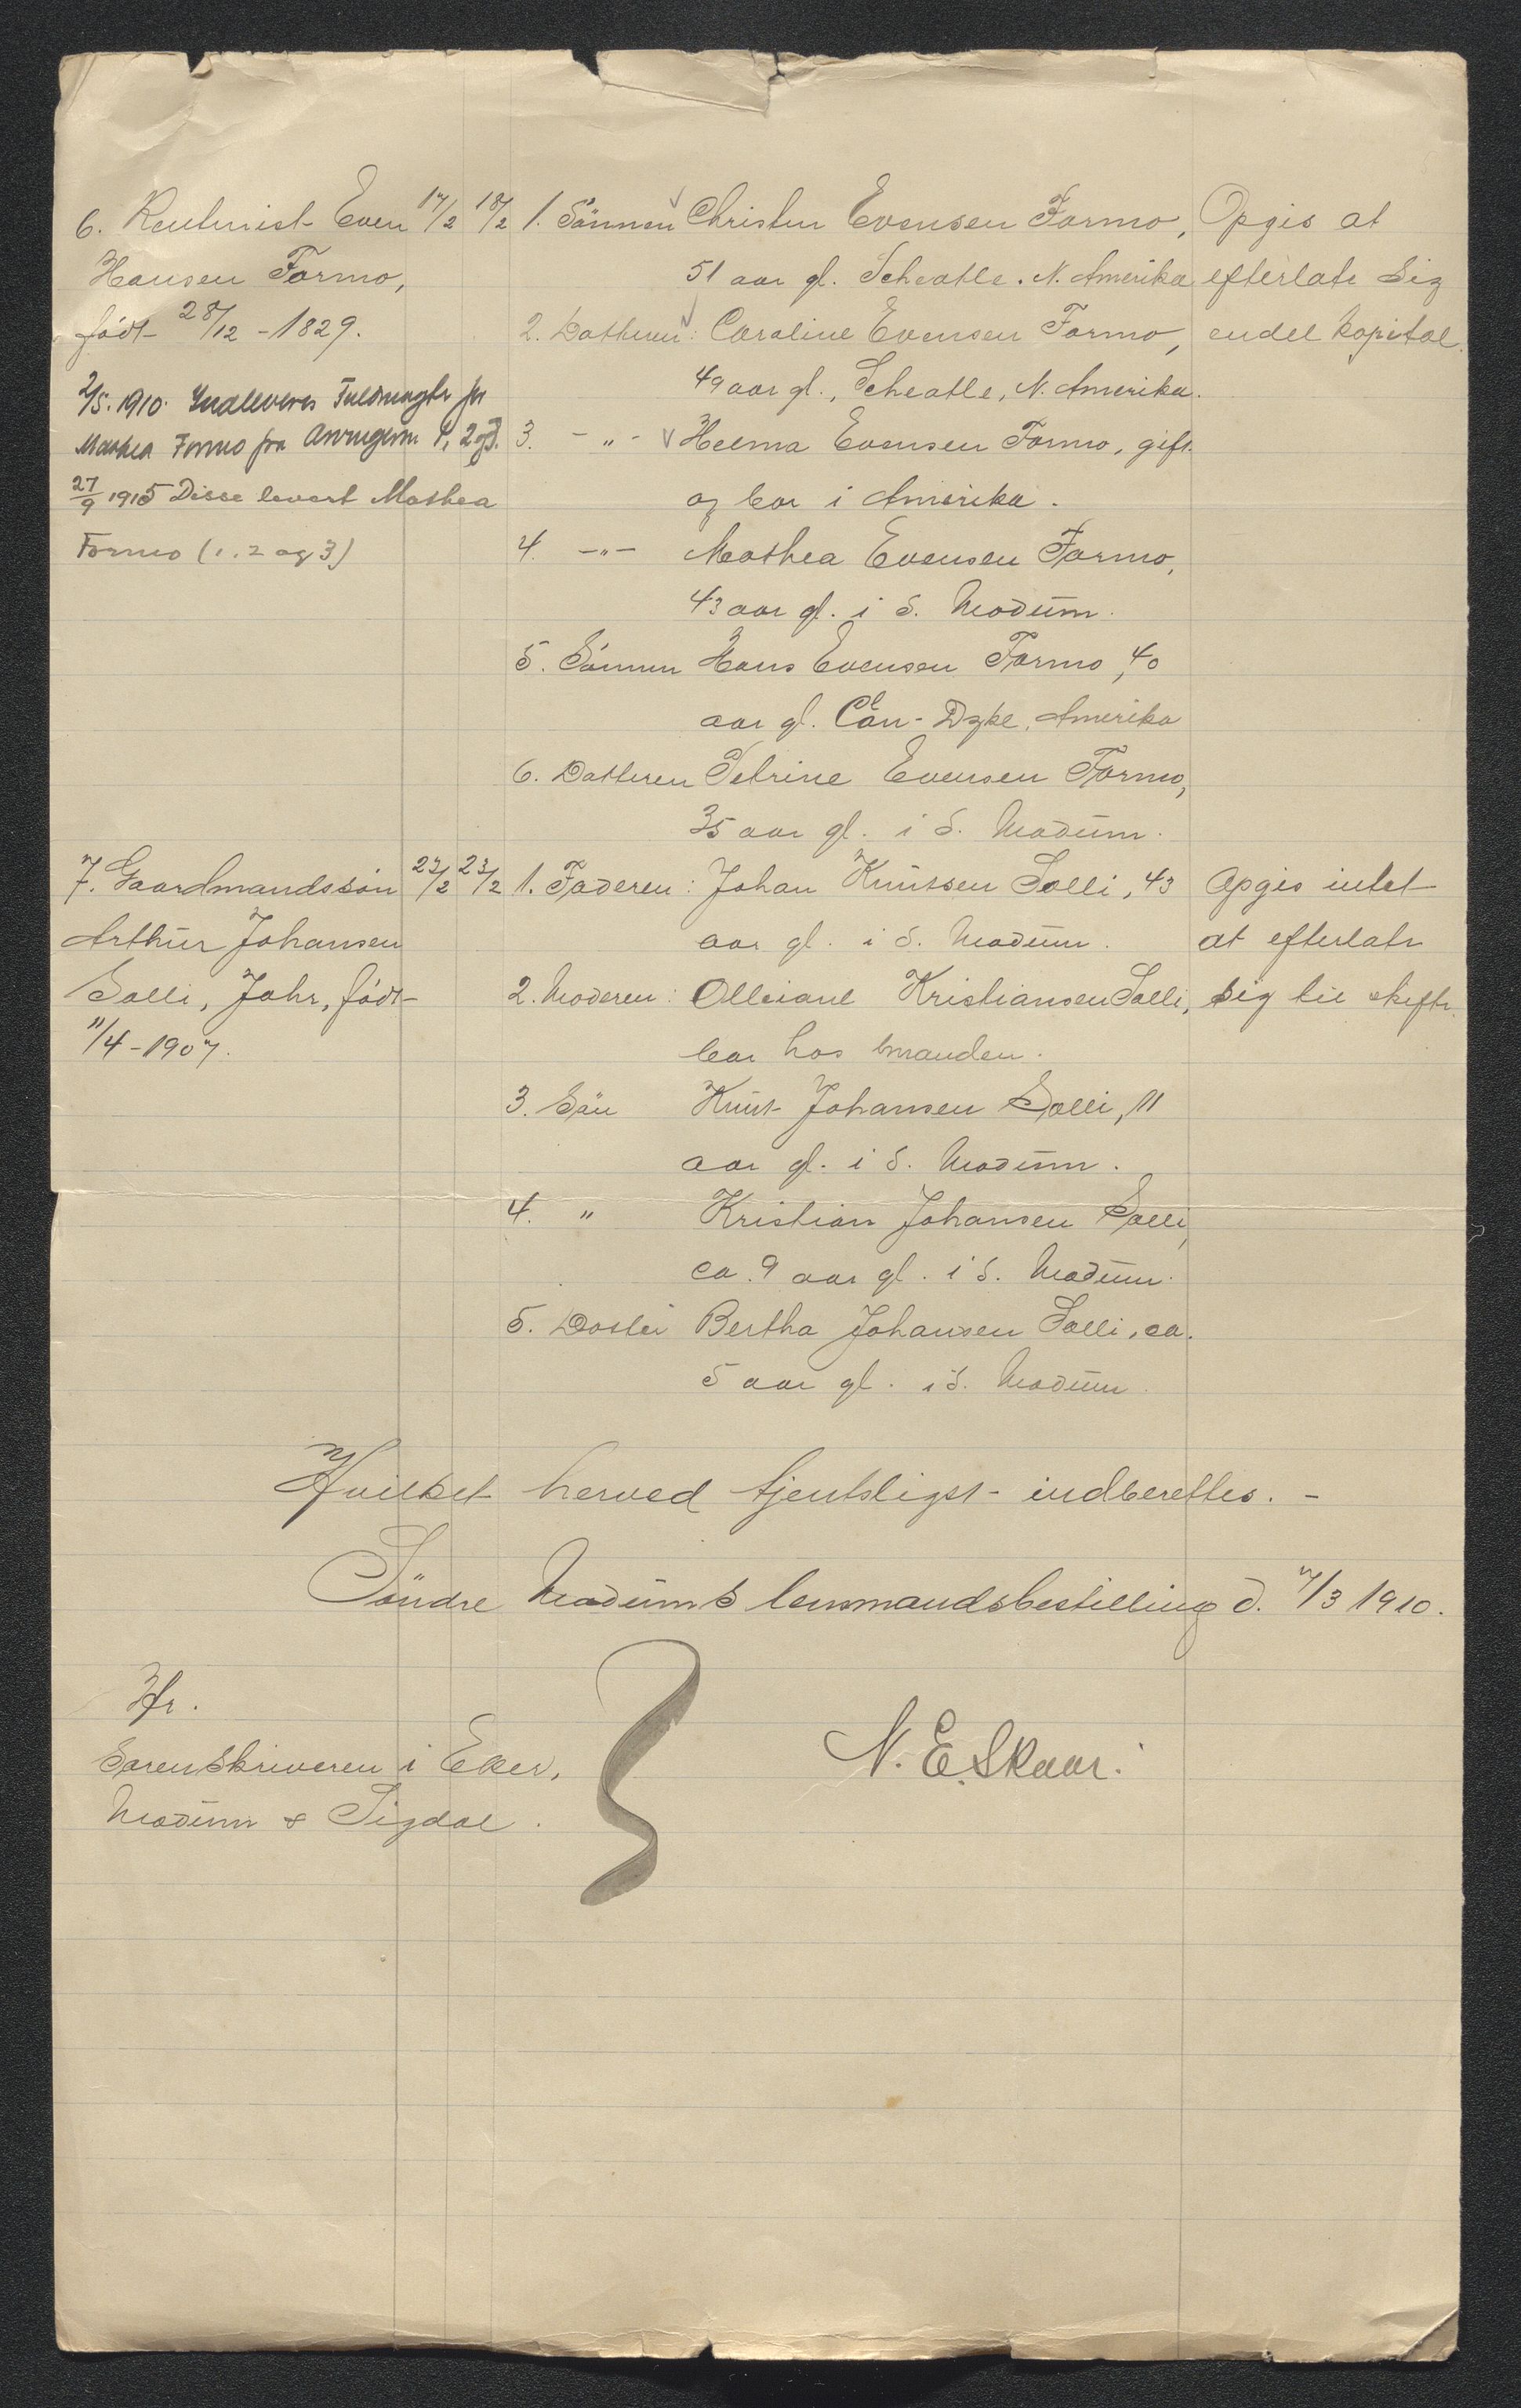 6. Rentenist Even
Hansen Formo,
født 28/12 - 1829.
2/5. 1910. Indleveres Fuldmagter for
Mathea Formo fra Arvingerne 1, 2 og 3.
27/9 1915 Disse levert Mathea
Formo (1. 2 og 3)
17/2 18/2
1. Sønnen Christen Evensen Formo,
51 aar gl. Scheatle. N. Amerika
2. Datteren: Caroline Evensen Formo,
49 aar gl., Scheatle, N. Amerika.
3. - " - Helma Evensen Formo, gift
og bor i Amerika.
4. - " - Mathea Evensen Formo,
43 aar gl. i S. Modum.
5. Sønnen Hans Evensen Formo, 40
aar gl. Amerika
6. Datteren Petrine Evensen Formo,
35 aar gl. i S. Modum.
Opgis at
efterlate sig
endel kapital.
7. Gaardmandssøn
Arthur Johansen
Solli, Johr, født
11/4 - 1907.
22/2 23/2
1. Faderen: Johan Knutsen Solli, 43
aar gl. i S. Modum.
2. Moderen: Olleiane Kristiansen Solli,
bor hos manden.
3. Søn Knut Johansen Solli, 11
aar gl. i S. Modum.
4. " Kristian Johansen Solli,
ca. 9 aar gl. i S. Modum.
5. Datter Bertha Johansen Solli, ca.
5 aar gl. i S. Modum.
Opgis intet
at efterlate
sig til skifte.
Hvilket herved tjentsligst indberettes. -
Søndre Modums lensmandsbestilling d. 7/3 1910.
N. E. Skaar.
Hr.
Sorenskriveren i Eker,
Modum & Sigdal.